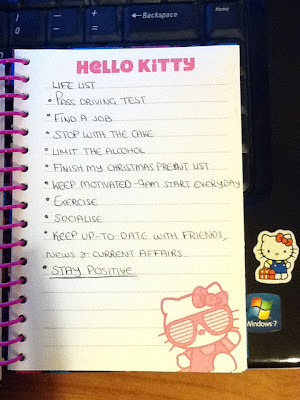 ← Backspace
Home
HELLO KITTY
LIFE LIST
• PASS DRIVING TEST
• FIND A JOB
• STOP WITH THE CAKE
• LIMIT THE ALCOHOL
• FINISH MY CHRISTMAS PRESENT LIST
• KEEP MOTIVATED - 9AM START EVERYDAY
• EXERCISE
• SOCIALISE
• KEEP UP-TO-DATE WITH FRIENDS,
NEWS & CURRENT AFFAIRS.
• STAY POSITIVE
Windows 7